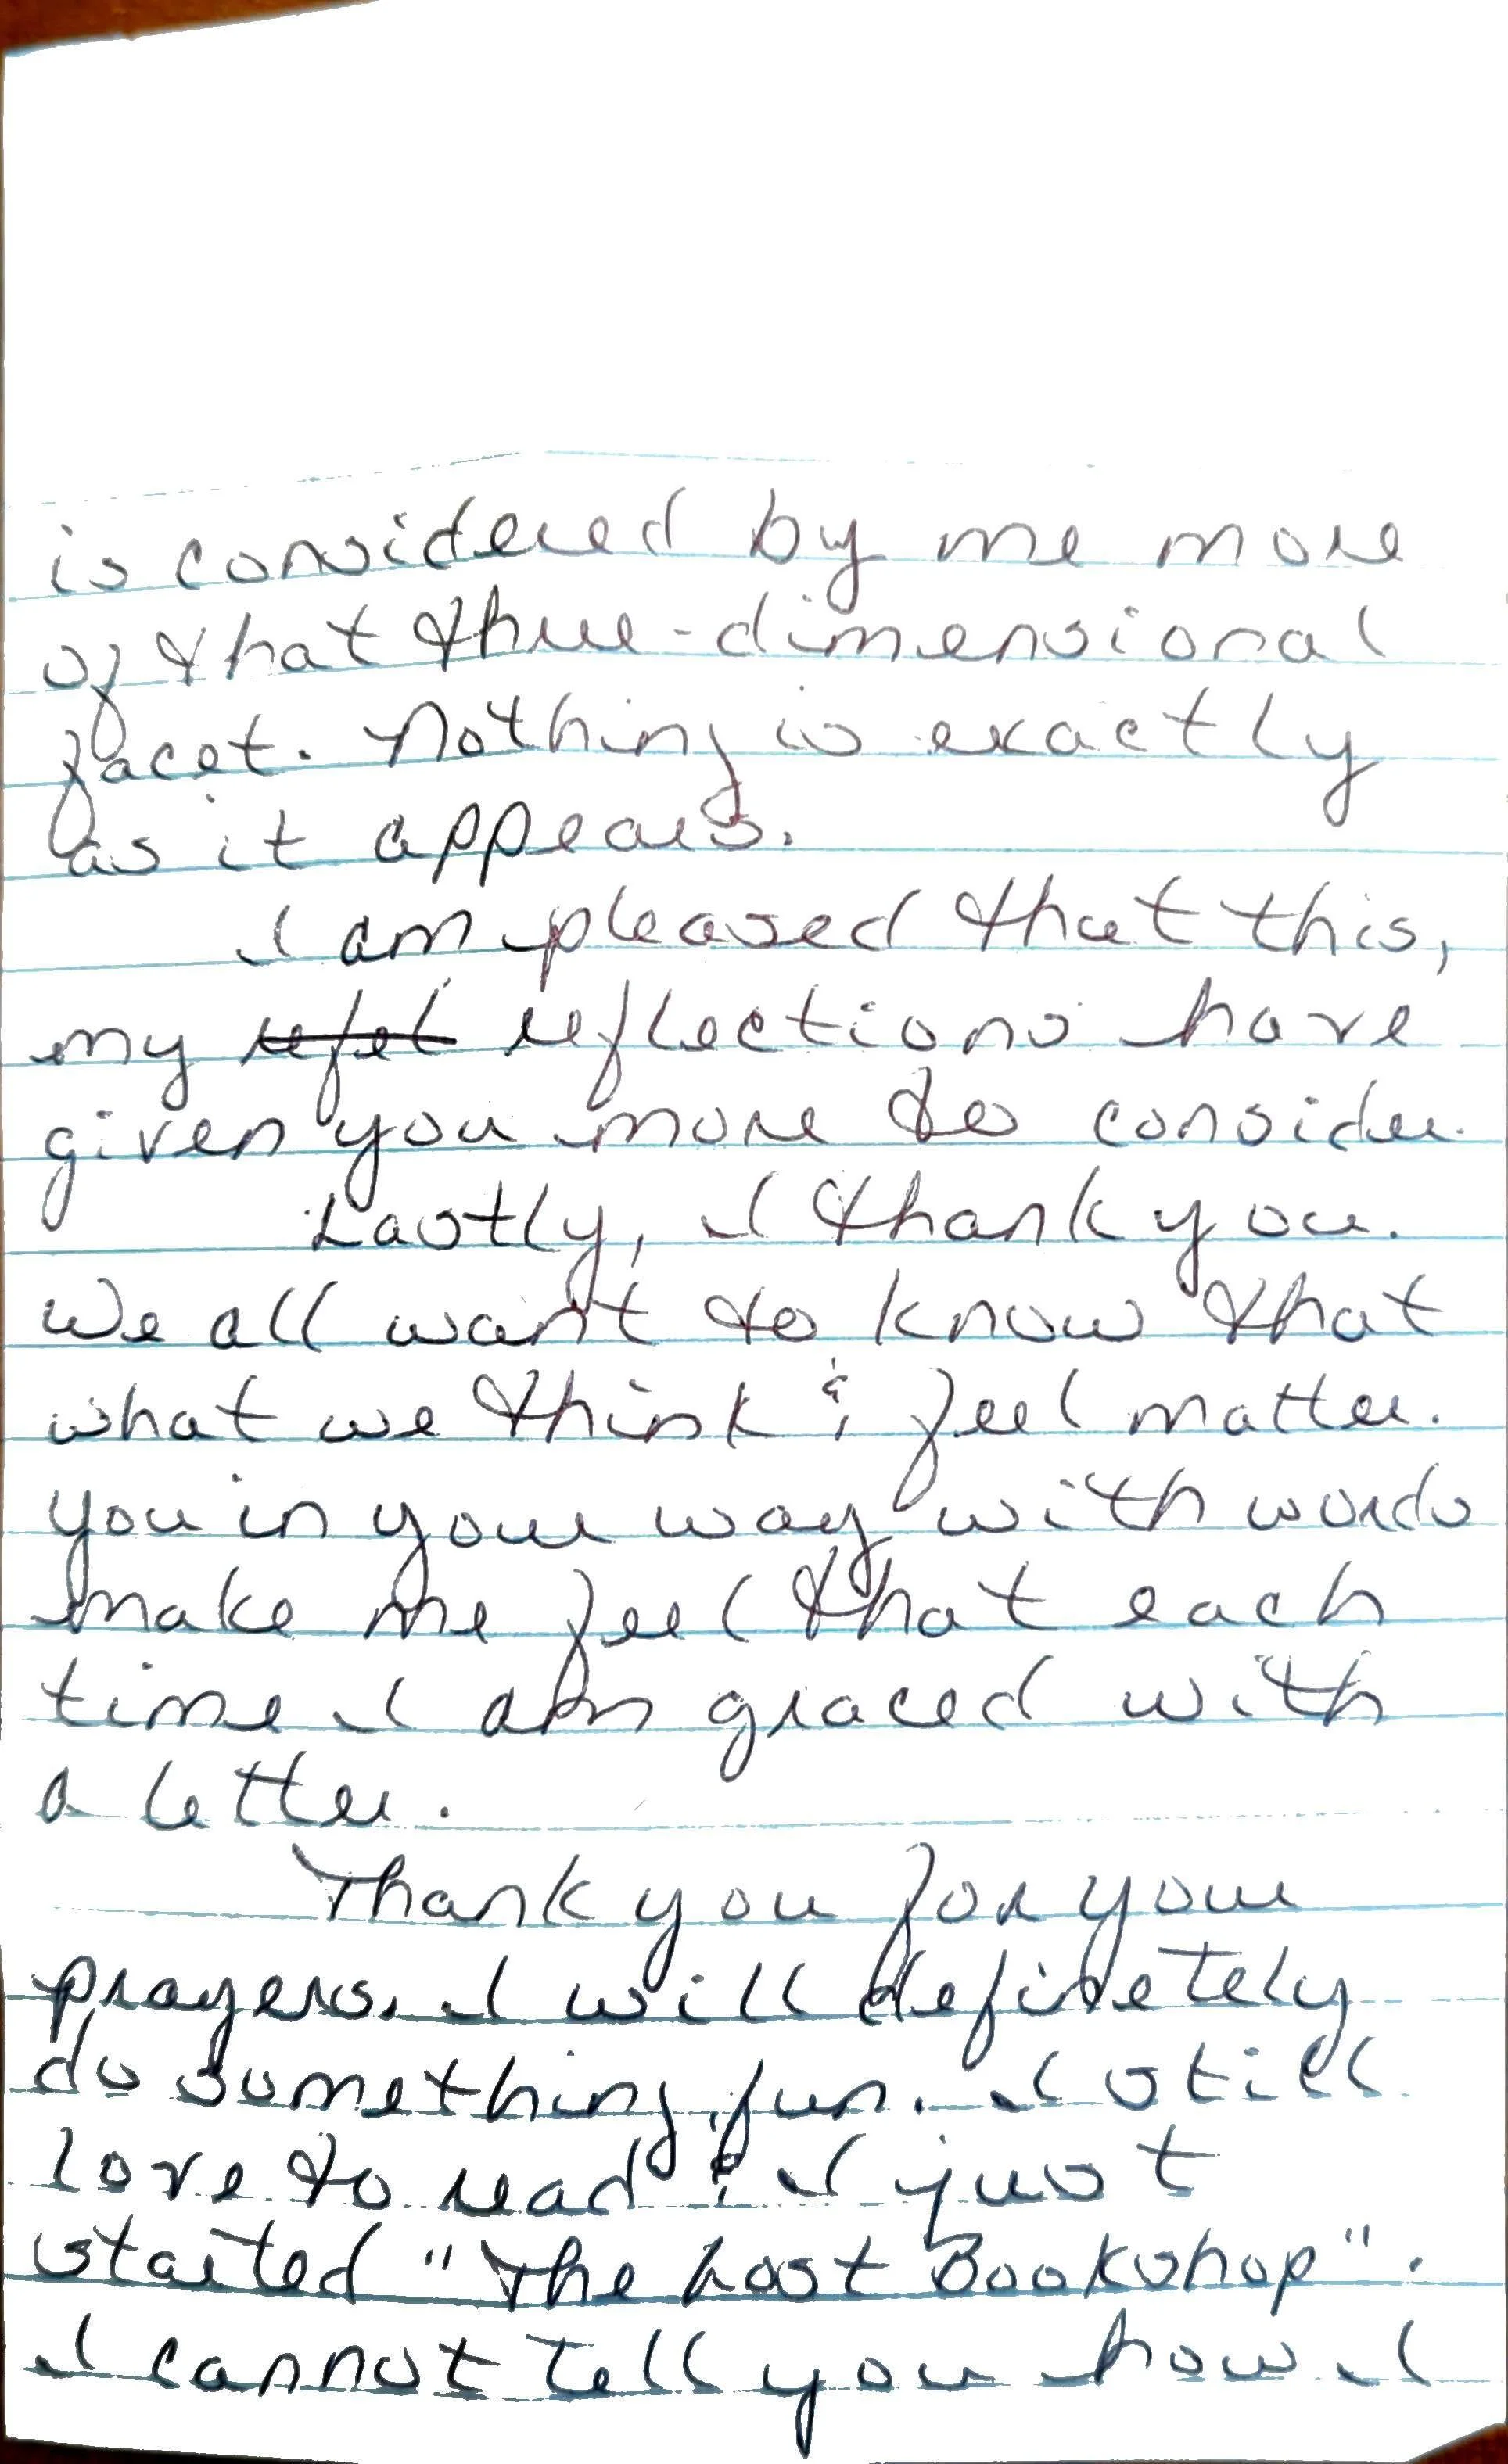 is considered by me more
of that three-dimensional
facet. Nothing is exactly
as it appears.
I am pleased that this,
my reflections have
given you more to consider.
Lastly, I thank you.
We all want to know that
what we think & feel matter.
You in your way with words
make me feel that each
time I am graced with
a letter.
Thank you for your
prayers. I will definetely
do something fun. I still
love to read & I just
started "The Lost Bookshop".
I cannot tell you how I